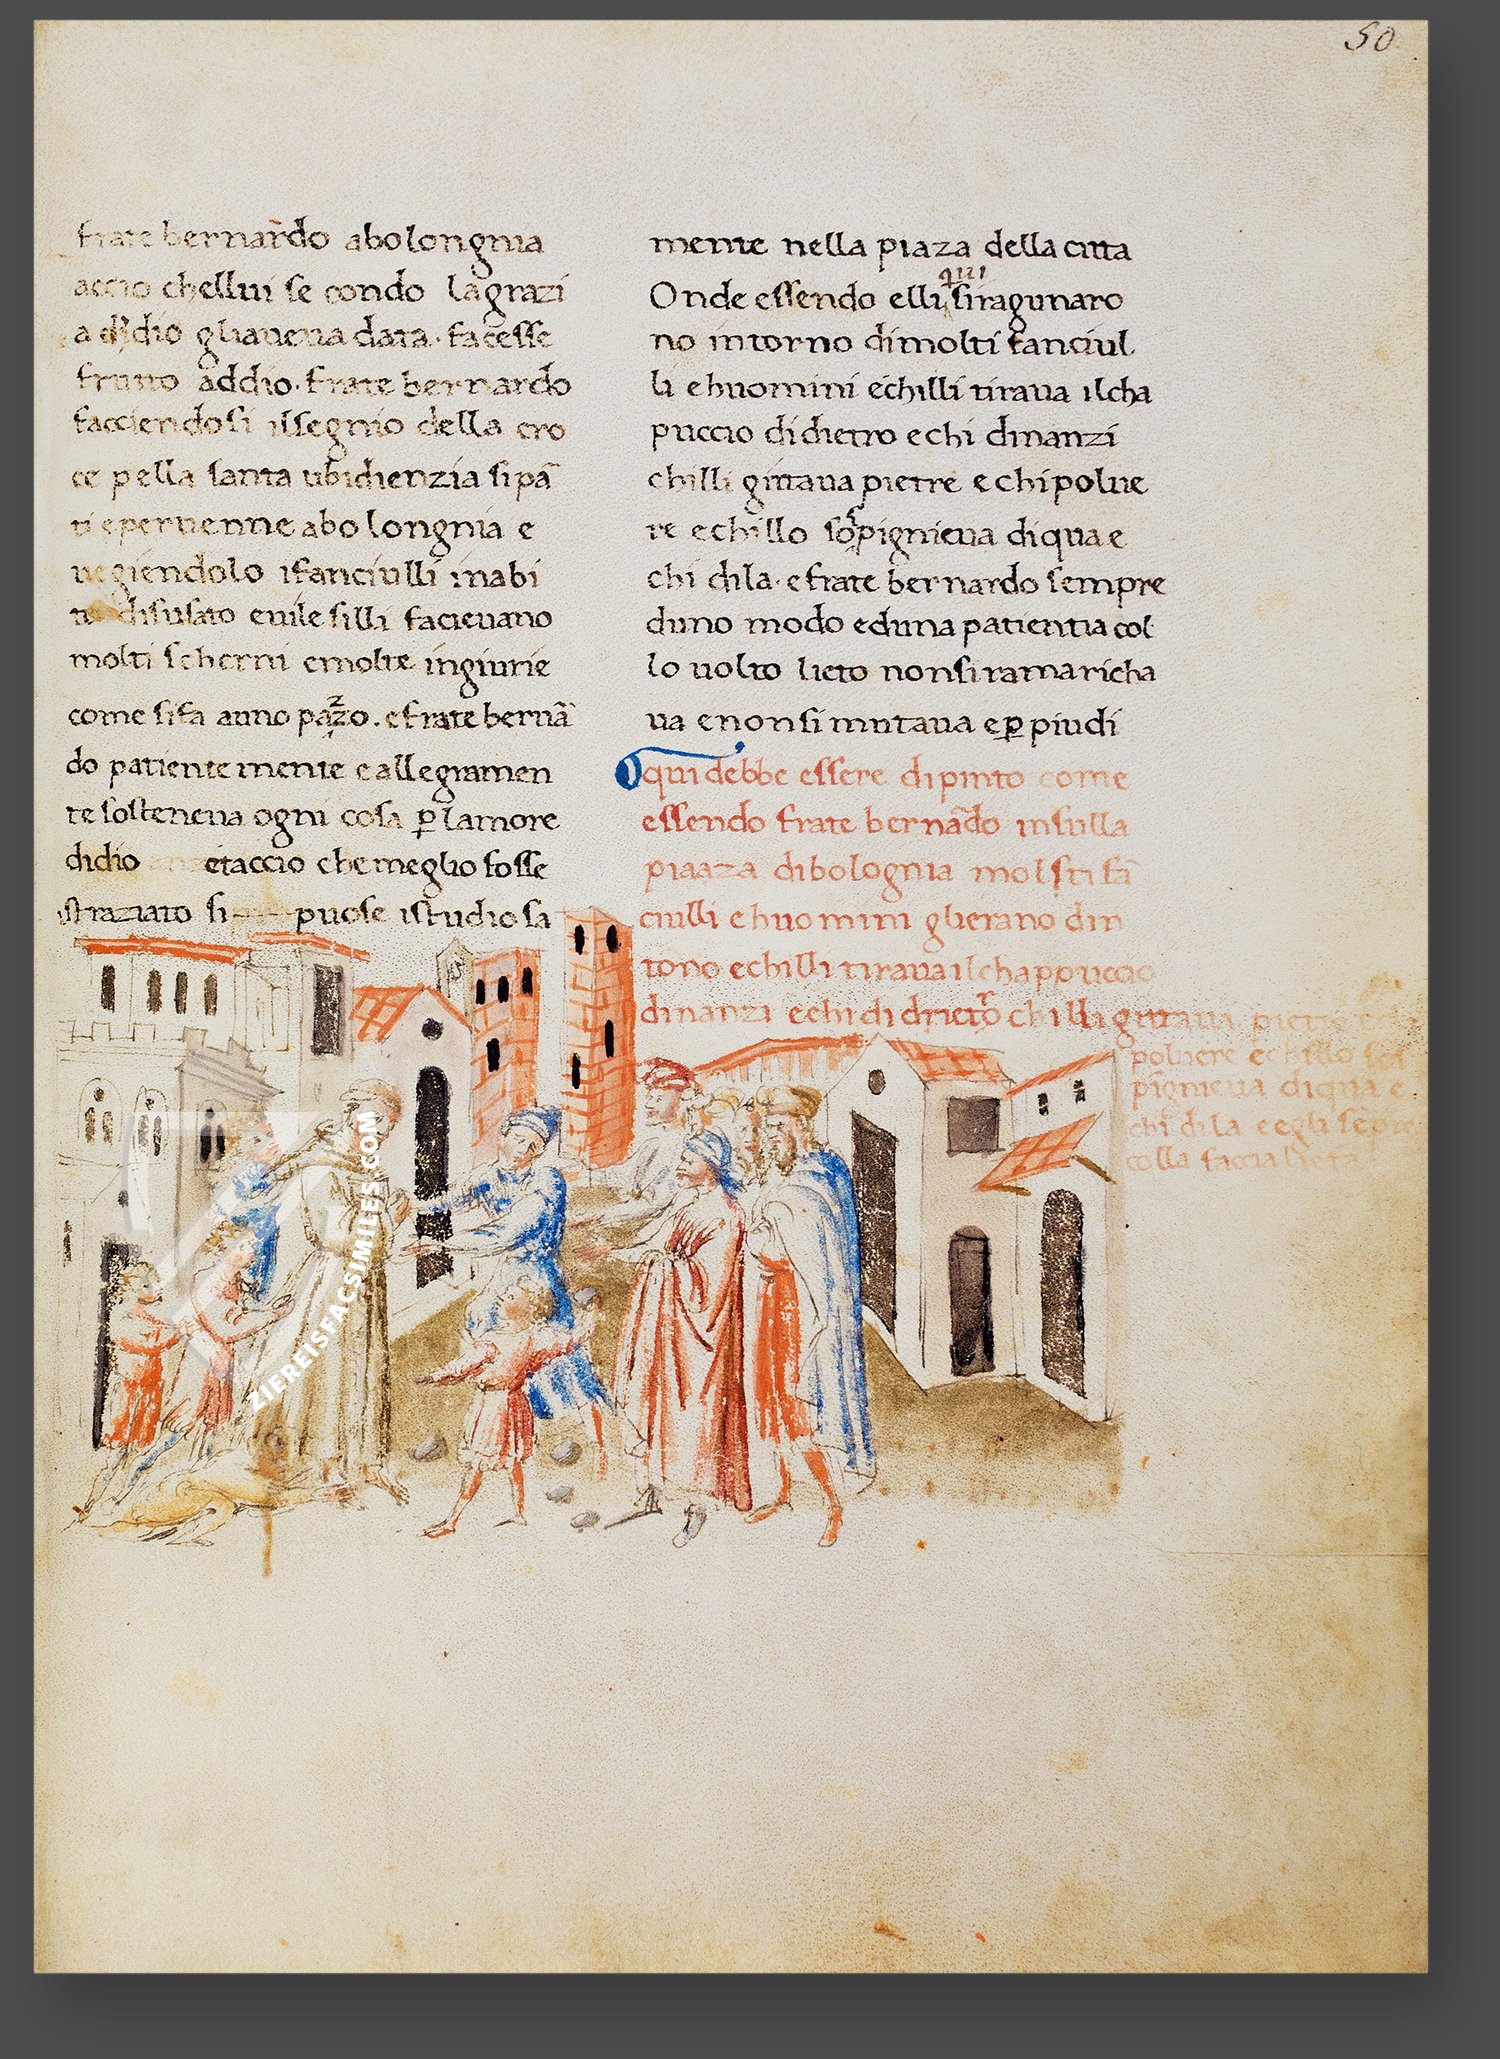 50
frate bernardo abolongnia
accio chellui se condo lagrazi
a didio gliaueua data. facesse
frutto addio. frate bernardo
facciendosi ilsegnio della cro
ce pella santa ubidienzia si pã
ti e peruenne abo longnia e
uegiendolo ifanciulli inabi
to disusato euile silli facieuano
molti scherni emolte ingiurie
come sifa auno pazzo. efrate bernã
do patiente mente eallegramen
te sosteneua ogni cosa ꝑlamore
didio etaccio che meglio fosse
istraziato si puose istudiosa
mente nella piaza della citta
Onde essendo elli qui siragunaro
no intorno dimolti fanciul
li ehuomini echilli tiraua ilcha
puccio didietro echi dinanzi
chilli gittaua pietre echipolue
re echillo sospignieua diqua e
chi dila. efrate bernardo sempre
duno modo eduna patientia col
lo uolto lieto nonsiramaricha
ua enonsi mutaua eꝑ piudi
qui debbe essere dipinto come
essendo frate bernãdo insulla
piaaza dibolognia molsti fã
ciulli ehuomini glierano din
tono echilli tiraua ilchappuccio
dinanzi echi di drietro chilli gittaua pietre
poluere echillo sos
pignieua diqua e
chi dila eegli sẽpre
colla faccia lieta
ZIEREISFACSIMILES.COM